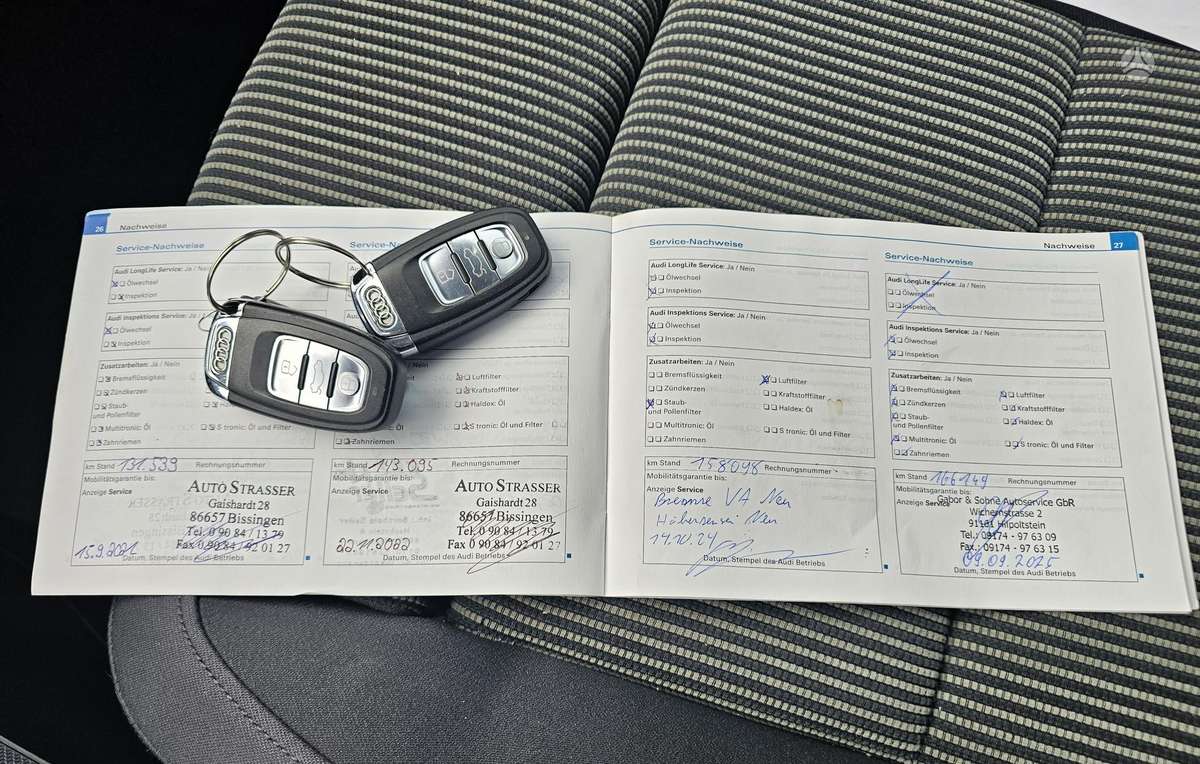 26 Nachweise
Service-Nachweise
Audi LongLife Service: Ja / Nein
Ölwechsel
Inspektion
Audi Inspektions Service: Ja / Nein
Ölwechsel
Inspektion
Zusatzarbeiten: Ja / Nein
Bremsflüssigkeit
Zündkerzen
Staub-
und Pollenfilter
Multitronic: Öl
S tronic: Öl und Filter
Zahnriemen
km Stand 131.539 Rechnungsnummer
Mobilitätsgarantie bis:
Anzeige Service
AUTO STRASSER
Gaishardt 28
86657 Bissingen
Tel. 0 90 84 / 13 79
Fax 0 90 84 / 92 01 27
15.9.2021
Datum, Stempel des Audi Betriebs
Luftfilter
Kraftstofffilter
Haldex: Öl
S tronic: Öl und Filter
Zahnriemen
km Stand 143.095 Rechnungsnummer
Mobilitätsgarantie bis:
Anzeige Service
AUTO STRASSER
Gaishardt 28
86657 Bissingen
Tel. 0 90 84 / 13 79
Fax 0 90 84 / 92 01 27
22.11.2022
Datum, Stempel des Audi Betriebs
Service-Nachweise
Audi LongLife Service: Ja / Nein
Ölwechsel
Inspektion
Audi Inspektions Service: Ja / Nein
Ölwechsel
Inspektion
Zusatzarbeiten: Ja / Nein
Bremsflüssigkeit
Luftfilter
Zündkerzen
Kraftstofffilter
Staub-
und Pollenfilter
Haldex: Öl
Multitronic: Öl
S tronic: Öl und Filter
Zahnriemen
km Stand 158098 Rechnungsnummer
Mobilitätsgarantie bis:
Anzeige Service
Bremse VA Neu
Neu
14.10.24
Datum, Stempel des Audi Betriebs
Nachweise 27
Service-Nachweise
Audi LongLife Service: Ja / Nein
Ölwechsel
Inspektion
Audi Inspektions Service: Ja / Nein
Ölwechsel
Inspektion
Zusatzarbeiten: Ja / Nein
Bremsflüssigkeit
Luftfilter
Zündkerzen
Kraftstofffilter
Staub-
und Pollenfilter
Haldex: Öl
Multitronic: Öl
S tronic: Öl und Filter
Zahnriemen
km Stand 166149 Rechnungsnummer
Mobilitätsgarantie bis:
Anzeige Service
Gabor & Söhne Autoservice GbR
Wichernstrasse 2
91161 Hilpoltstein
Tel.: 09174 - 97 63 09
Fax.: 09174 - 97 63 15
09.09.2025
Datum, Stempel des Audi Betriebs